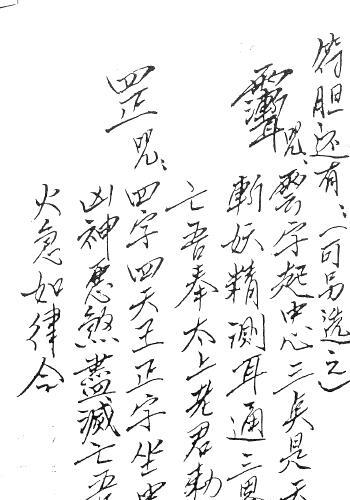 符胆还有:(可另选之
咒:雲字起中心三奌是天
斬妖精測耳通三
亡吾奉太上老君勅
罡咒:四字四天王正字坐中
凶神惡煞盡滅亡吾
火急如律令